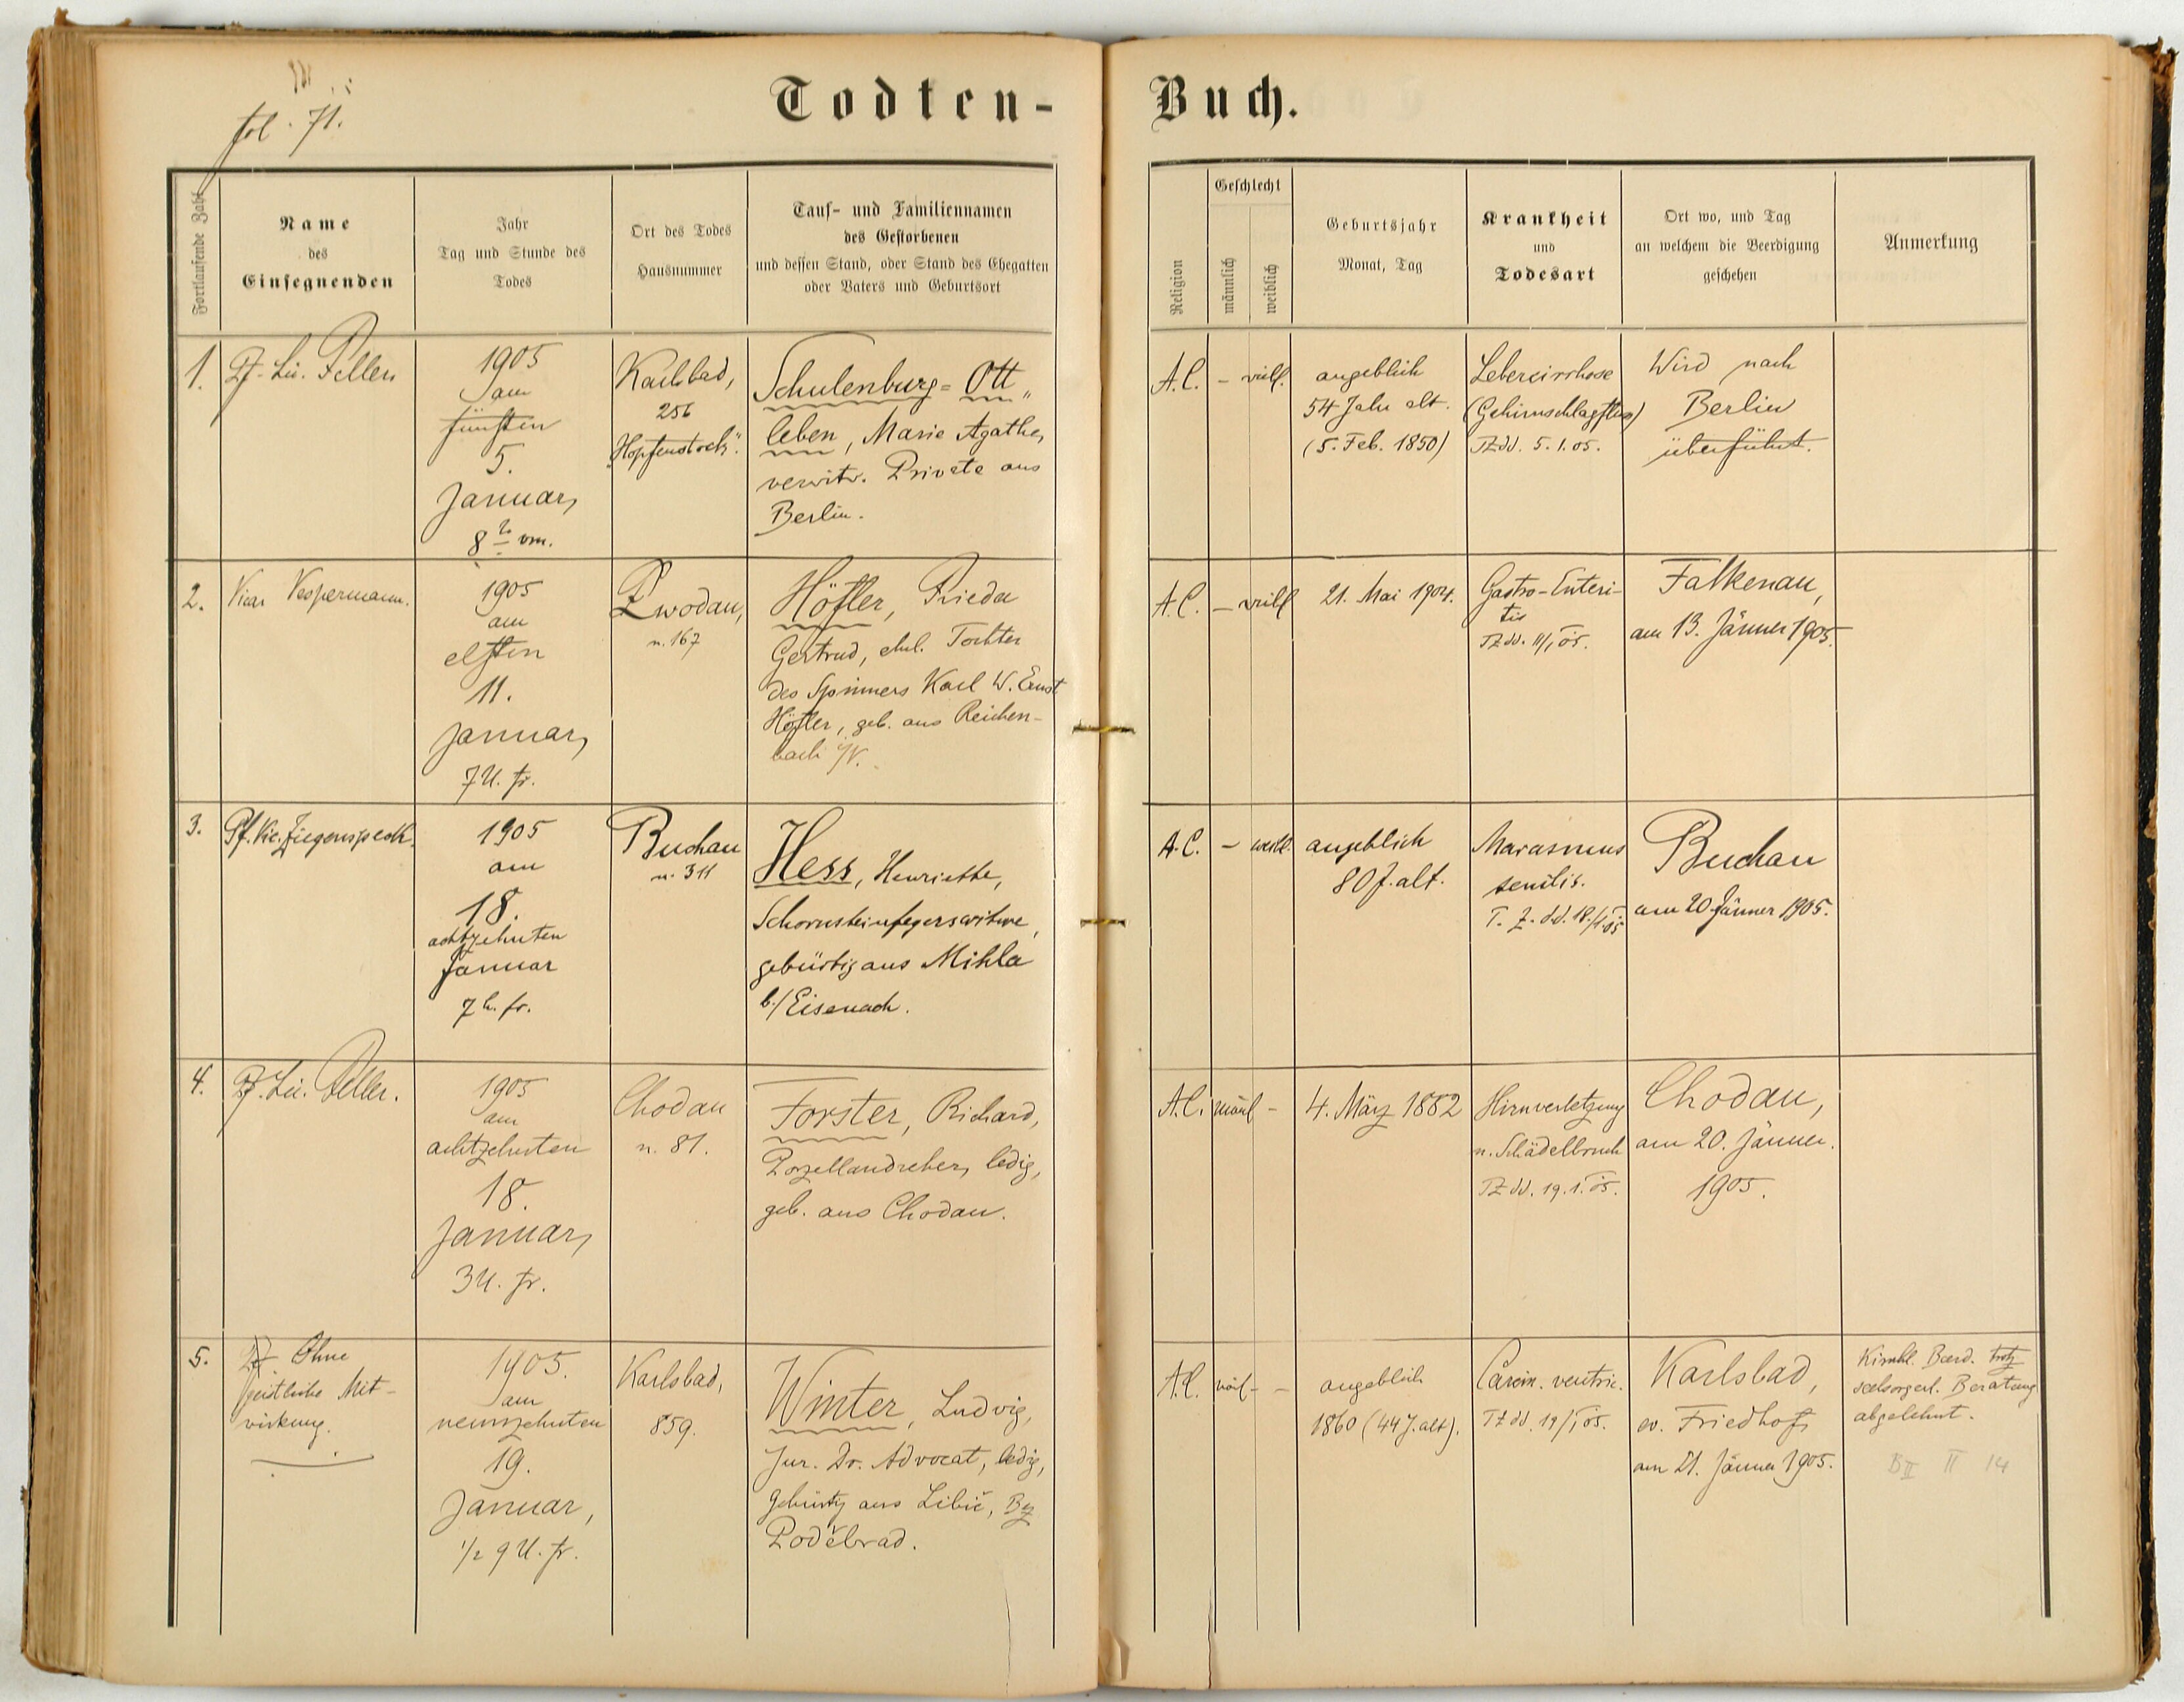 fol. 71.
Todten-
Buch.
Fortlaufende Zahl
Name
des
Einsegnenden
Jahr
Tag und Stunde des
Todes
Ort des Todes
Hausnummer
Tauf- und Familiennamen
des Gestorbenen
und dessen Stand, oder Stand des Ehegatten
oder Vaters und Geburtsort
Religion
Geschlecht
männlich
weiblich
Geburtsjahr
Monat, Tag
Krankheit
und
Todesart
Ort wo, und Tag
an welchem die Beerdigung
geschehen
Anmerkung
1.
1905
am
fünften
5.
Januar,
8 vm.
Karlsbad,
256
„Hopfenstock".
Schulenburg-Ott„
leben, Marie Agathe,
verwitw. Private aus
Berlin.
A.C.
-
weibl.
angeblich
54 Jahre alt.
(5. Feb. 1850)
Lebercirrhose
(Gehirnschlagfluss)
TZ dd. 5.1.05.
Wird nach
Berlin
überführt.
2.
Vicar Vespermann.
1905
am
elften
11.
Januar,
7 U. fr.
Zwodau,
n. 167
Höfler, Frieda
Gertrud, ehel. Tochter
des Spinners Karl W. Ernst
Höfler, geb. aus Reichen-
bach i/V.
A.C.
-
weibl
21. Mai 1904.
Gastro-Enteri-
tis
TZ dd. 11/1 05.
Falkenau,
am 13. Jänner 1905.
3.
Pf. Vic. Ziegenspeck.
1905
am
18.
achtzehnten
Januar
7 h. fr.
Buchau
n. 311
Hess, Henriette,
Schornsteinfegerswitwe,
gebürtig aus Mihla
b./Eisenach.
A.C.
-
weibl.
angeblich
80 J. alt.
Marasmus
senilis.
T. Z. dd. 18./1.05
Buchau
am 20. Jänner 1905.
4.
1905
am
achtzehnten
18.
Januar,
3 U. fr.
Chodau
n. 81.
Forster, Richard,
Porzellandreher, ledig,
geb. aus Chodau.
A.C.
mänl
-
4. März 1882
Hirnverletzung
n. Schädelbruch
TZ dd. 19.1.05.
Chodau,
am 20. Jänner.
1905.
5.
Ohne
geistliche Mit-
wirkung.
1905.
am
neunzehnten
19.
Januar,
1/2 9 U. fr.
Karlsbad,
859.
Winter, Ludwig,
Jur. Dr. Advocat, ledig,
gebürtig aus Libič, Bez
Poděbrad.
A.C.
-
angeblich
1860 (44 J. alt).
Carcin. ventric.
TZ dd. 19/1 05.
Karlsbad,
ev. Friedhof,
am 21. Jänner 1905.
Kirchl. Beerd. trotz
seelsorgerl. Beratung
abgelehnt.
B II II 14